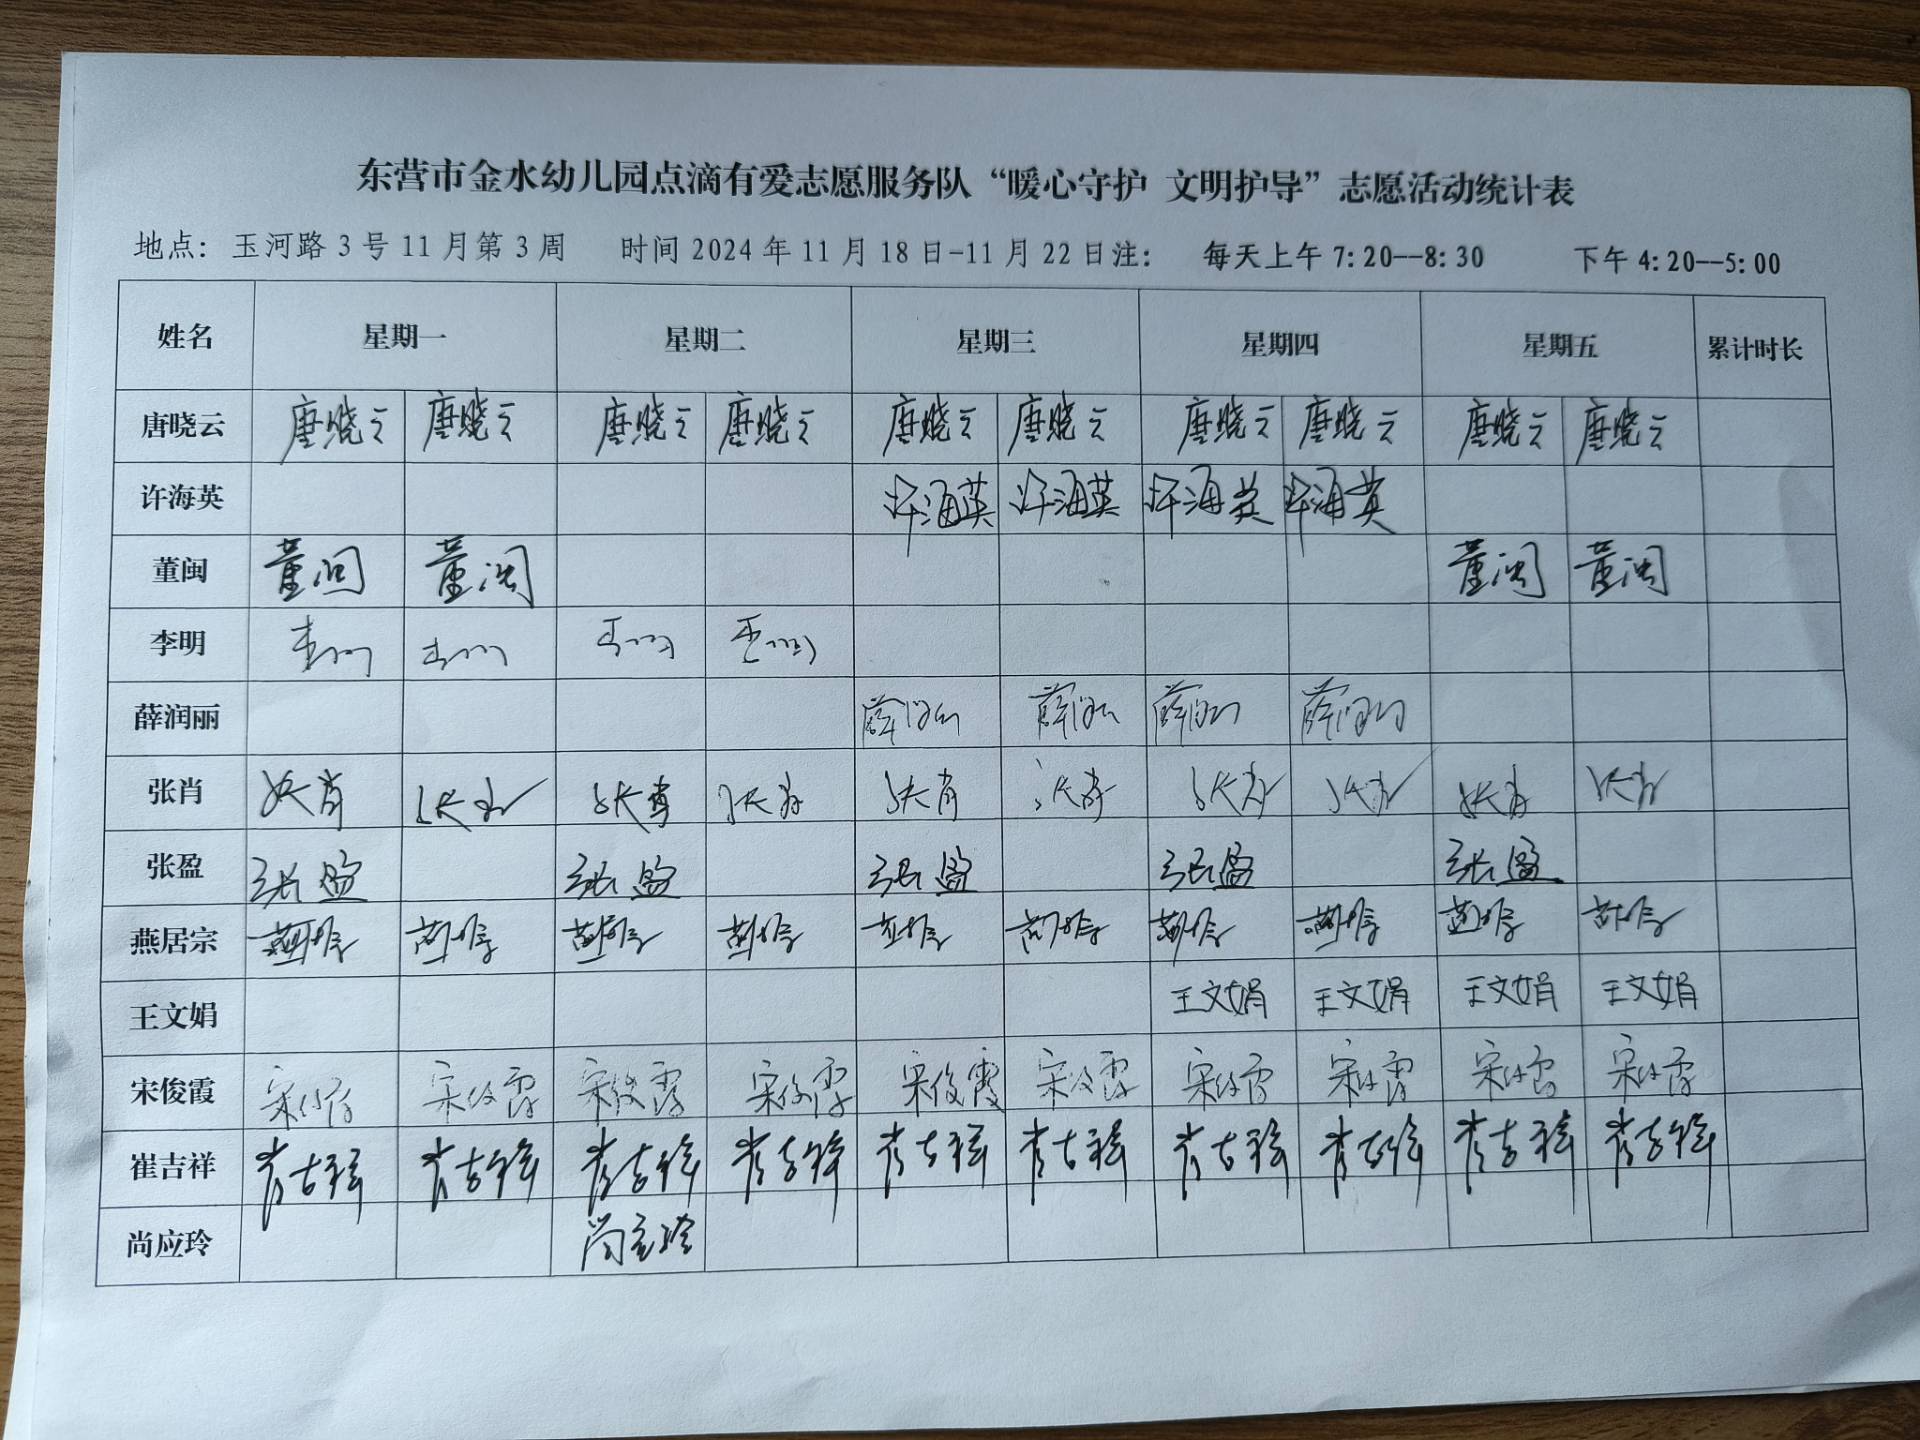 东营市金水幼儿园点滴有爱志愿服务队“暖心守护 文明护导”志愿活动统计表
地点：玉河路3号11月第3周 时间2024年11月18日-11月22日注： 每天上午7:20--8:30 下午4:20--5:00
姓名 星期一 星期二 星期三 星期四 星期五 累计时长
唐晓云 唐晓云 唐晓云 唐晓云 唐晓云 唐晓云 唐晓云 唐晓云 唐晓云 唐晓云 唐晓云
许海英 许海英 许海英 许海英 许海英
董闽 董闽 董闽 董闽 董闽
李明
薛润丽 薛润丽 薛润丽 薛润丽 薛润丽
张肖 张肖 张肖 张肖 张肖 张肖 张肖 张肖 张肖 张肖 张肖
张盈 张盈 张盈 张盈 张盈 张盈
燕居宗
王文娟 王文娟 王文娟 王文娟 王文娟
宋俊霞 宋俊霞 宋俊霞 宋俊霞 宋俊霞 宋俊霞 宋俊霞 宋俊霞 宋俊霞 宋俊霞 宋俊霞
崔吉祥 崔吉祥 崔吉祥 崔吉祥 崔吉祥 崔吉祥 崔吉祥 崔吉祥 崔吉祥 崔吉祥 崔吉祥
尚应玲 尚应玲